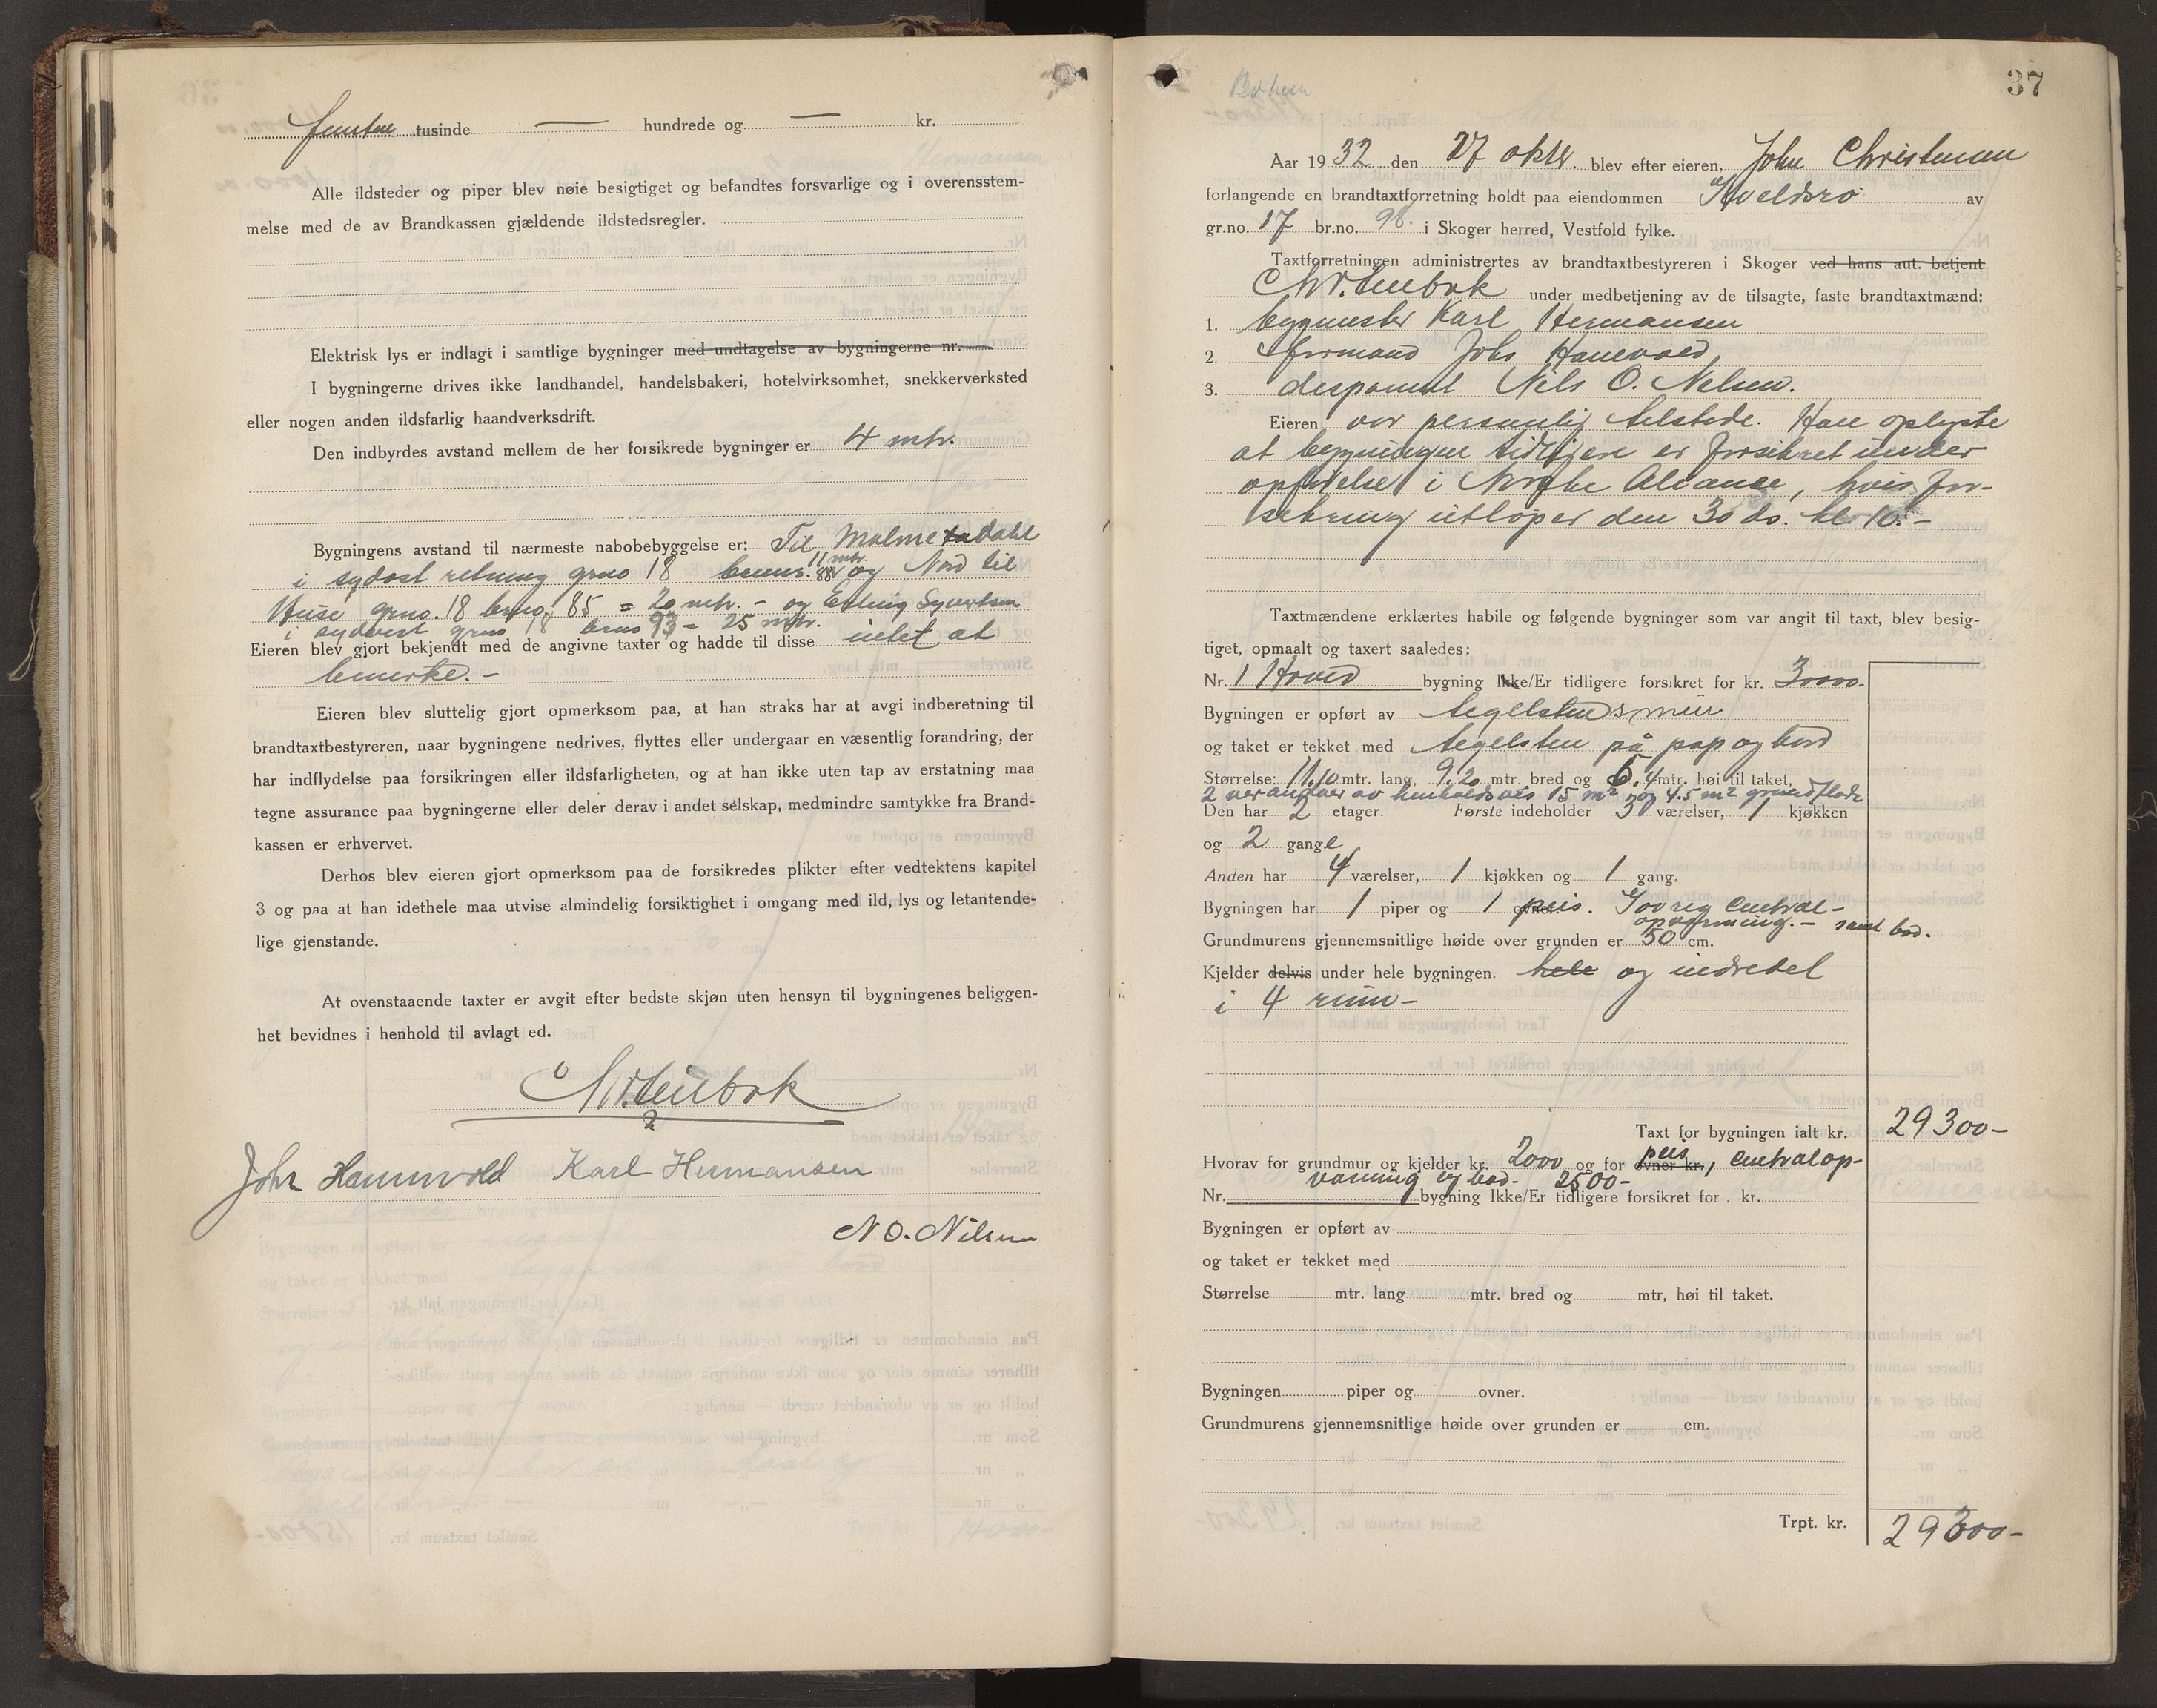 femten tusinde — hundrede og — kr.
Alle ildsteder og piper blev nøie besigtiget og befandtes forsvarlige og i overensstem-
melse med de av Brandkassen gjældende ildstedsregler.
Elektrisk lys er indlagt i samtlige bygninger med undtagelse av bygningerne nr.
I bygningerne drives ikke landhandel, handelsbakeri, hotelvirksomhet, snekkerverksted
eller nogen anden ildsfarlig haandverksdrift.
Den indbyrdes avstand mellem de her forsikrede bygninger er 4 mtr.
Bygningens avstand til nærmeste nabobebyggelse er: Til Dahl
i sydost retning grno 18 88 11 mtr. og Nord til
Huse grno. 18 brno. 85 = 20 mtr. - og Erling Syvertsen
i sydvest grno 18 brno 93 = 25 mtr.
Eieren blev gjort bekjendt med de angivne taxter og hadde til disse intet at
bemerke. -
Eieren blev sluttelig gjort opmerksom paa, at han straks har at avgi indberetning til
brandtaxtbestyreren, naar bygningene nedrives, flyttes eller undergaar en væsentlig forandring, der
har indflydelse paa forsikringen eller ildsfarligheten, og at han ikke uten tap av erstatning maa
tegne assurance paa bygningerne eller deler derav i andet selskap, medmindre samtykke fra Brand-
kassen er erhvervet.
Derhos blev eieren gjort opmerksom paa de forsikredes plikter efter vedtektens kapitel
3 og paa at han idethele maa utvise almindelig forsiktighet i omgang med ild, lys og letantende-
lige gjenstande.
At ovenstaaende taxter er avgit efter bedste skjøn uten hensyn til bygningenes beliggen-
het bevidnes i henhold til avlagt ed.
Johs Hanevold Karl Hermansen
N. O. Nilsen
37
Aar 1932 den 27 oktbr. blev efter eieren, John Christensen
forlangende en brandtaxtforretning holdt paa eiendommen Kveldsro av
gr.no. 17 br.no. 98. i Skoger herred, Vestfold fylke.
Taxtforretningen administrertes av brandtaxtbestyreren i Skoger ved hans aut. betjent
under medbetjening av de tilsagte, faste brandtaxtmænd:
1. bygmester Karl Hermansen
2. Formand Johs Hanevold
3. disponent Nils O. Nilsen.
Eieren var personlig tilstede. Han oplyste
at bygningen tidligere er forsikret under
opførelse i Norske Aliance, hvis for-
sikring utløper den 30 ds. kl 10. -
Taxtmændene erklærtes habile og følgende bygninger som var angit til taxt, blev besig-
tiget, opmaalt og taxert saaledes:
Nr. 1 Hoved bygning Ikke/Er tidligere forsikret for kr. 30000.
Bygningen er opført av tegelstensmur
og taket er tekket med tegelsten på pap og bord
Størrelse: 11.10 mtr. lang, 9.20 mtr. bred og 6.4 mtr. høi til taket,
2 verandaer av henholdsvis 15 m² og 4.5 m² grundflade
Den har 2 etager. Første indeholder 3 værelser, 1 kjøkken
og 2 gange
Anden har 4 værelser, 1 kjøkken og 1 gang.
Bygningen har 1 piper og 1 ovner peis. Iøvrig central-
opvarming. - samt bad.
Grundmurens gjennemsnitlige høide over grunden er 50 cm.
Kjelder delvis under hele bygningen. hele og indredet
i 4 rum -
Taxt for bygningen ialt kr. 29300 -
Hvorav for grundmur og kjelder kr. 2000 og for ovner kr. peis, centralop-
varming og bad - 2500 -
Nr. bygning Ikke/Er tidligere forsikret for kr.
Bygningen er opført av
og taket er tekket med
Størrelse mtr. lang mtr. bred og mtr, høi til taket.
Bygningen piper og ovner.
Grundmurens gjennemsnitlige høide over grunden er cm.
Trpt. kr. 29300 -